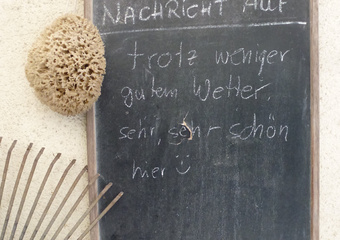 NACHRICHT AUF
trotz weniger
gutem Wetter,
sehr, sehr schön
hier :)